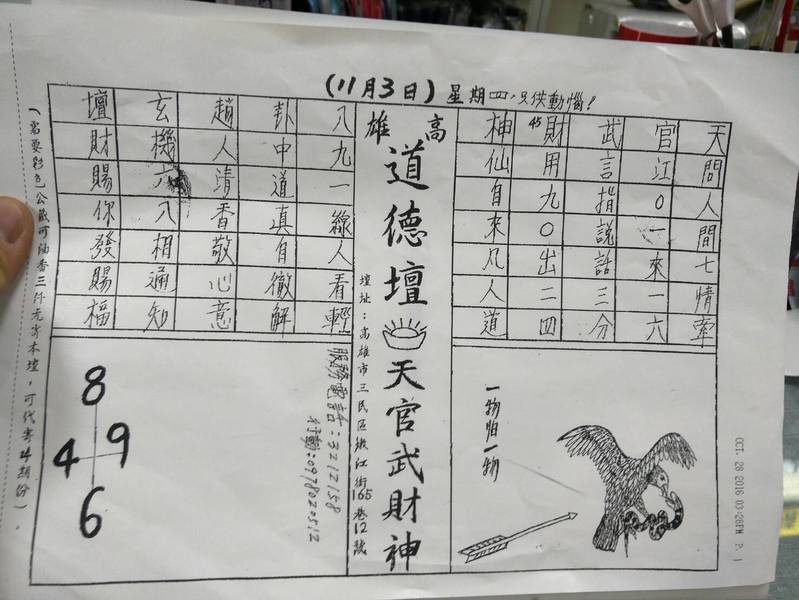 (11月3日)星期四,只供動惱!
天問人間七情牽
官江0一來一六
武言指說話三分
財45用九0出二四
神仙自來凡人道
高雄
道德壇天官武財神
壇址:高雄市三民區緞江街165巷12號
八九一線人看輕
卦中道真自徹解
趙人清香敬心意
玄機六八相通知
壇財賜你發賜福
一物怕一物
服務電話:3212158
行動:0978020512
8
4 9
6
(需要彩色公藏可油香三仟元寄本壇,可代寄4期份)。
OCT. 28 2016 03:28PM P. 1